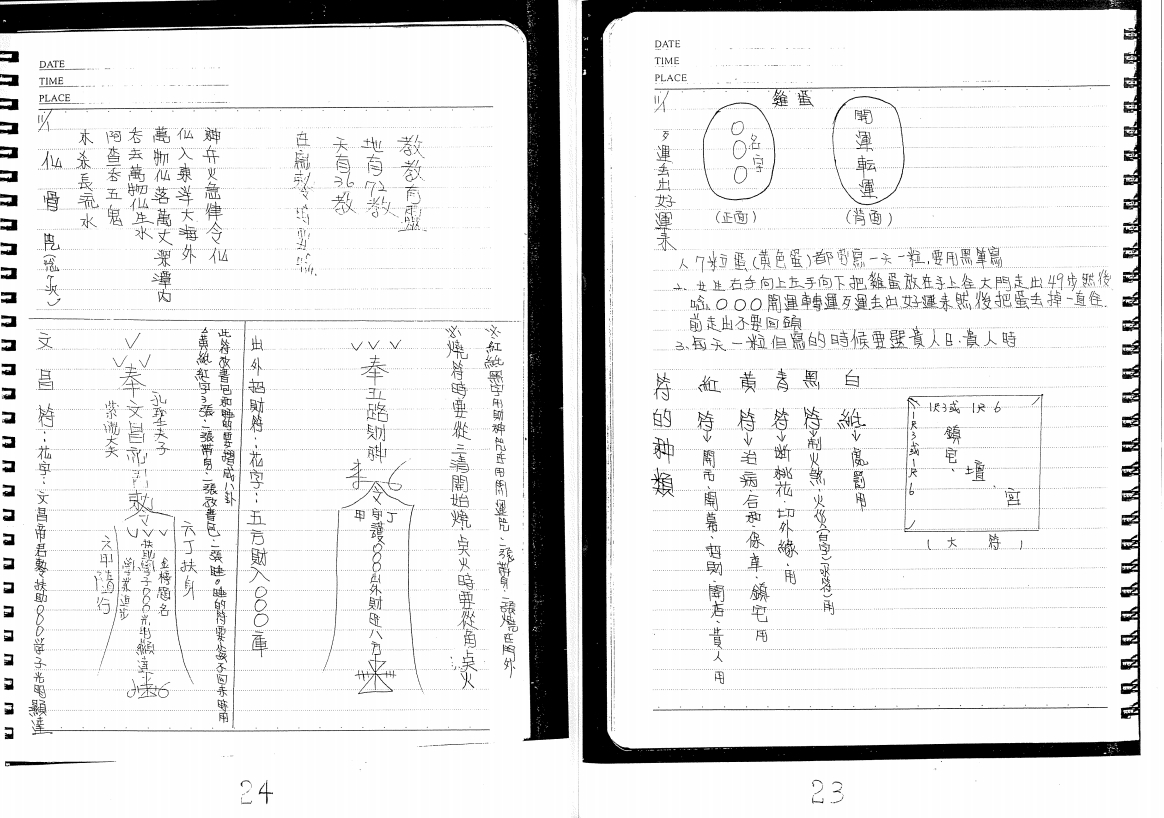 DATE
TIME
PLACE
11/1
教教有靈
地有72教
天有36教
神兵火急律令仙
仙入東洋大海外
萬物仙落萬丈深潭內
杏去萬物仙生水
阿查杏五鬼
木杀長流水
仙骨咒
※紅紙黑字用財神咒在用開運咒,二張帶身,二張燒在門外
※燒符時要從三清開始燒,点火時要從角点火
奉五路財神
令
甲
丁
守護000出外財旺八方
出外招財符:花字:五方財入000庫
此符放書包和睡的要摺成八卦
黃紙紅字3張,一張帶身,一張放書包,一張睡。
孔聖夫子
奉文昌
紫陽夫
敕令
六丁扶身
六甲隨行
金榜題名
扶助學子000光明顯達
學業進步
文昌符:花字:文昌帝君敕扶助000學子光明顯達
24
DATE
TIME
PLACE
11/1
歹運去出好運來
雞蛋
000名字
(正面)
開運転運
(背面)
1. 7粒蛋(黃色蛋)都要寫一天一粒,要用黑筆寫
2. 右手向上左手向下把雞蛋放在手上從大門走出49步然後
唸000開運轉運歹運去出好運來然後把蛋去掉一直往
前走出不要回頭
3. 每天一粒但寫的時候要選貴人日.貴人時
符的种類
紅符→開市.開幕.招財.開店.貴人用
黃符→治病.合和.保車.鎮宅用
青符→斷桃花.切外緣.用
黑符→制火煞.火傷(白字)(水符)用
白紙→處罰用
1尺3或1尺6
1尺3或1尺6
鎮宅.壇.宮
(大符)
23